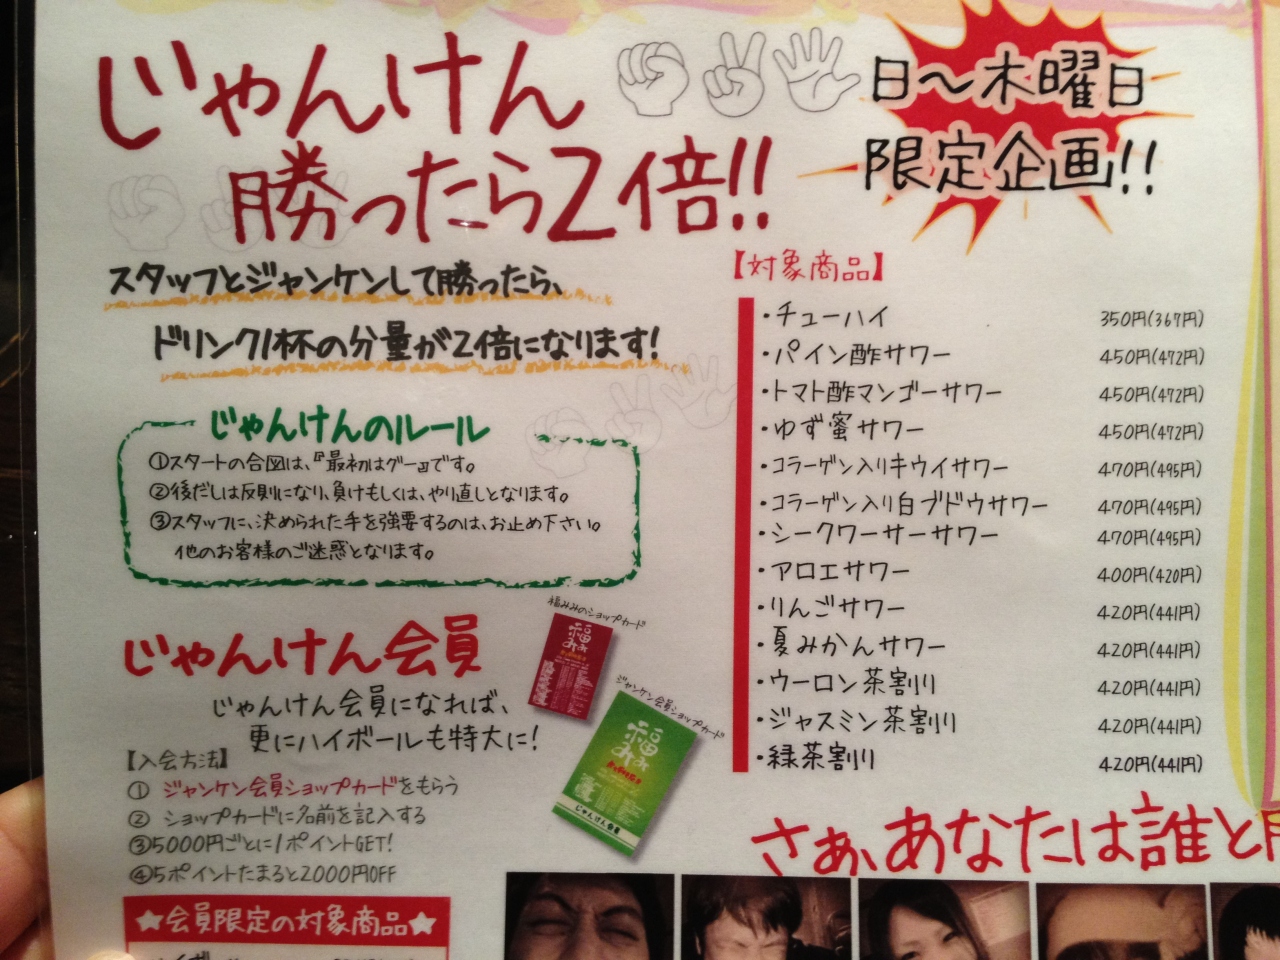 じゃんけん
勝ったら2倍!!
日〜木曜日
限定企画!!
スタッフとジャンケンして勝ったら、
ドリンク1杯の分量が2倍になります!
じゃんけんのルール
①スタートの合図は、『最初はグー』です。
②後だしは反則になり、負けもしくは、やり直しとなります。
③スタッフに、決められた手を強要するのは、お止め下さい。
他のお客様のご迷惑となります。
じゃんけん会員
じゃんけん会員になれば、
更にハイボールも特大に!
【入会方法】
① ジャンケン会員ショップカードをもらう
② ショップカードに名前を記入する
③5000円ごとに1ポイントGET!
④5ポイントたまると2000円OFF
★会員限定の対象商品★
福みみのショップカード
福みみ
ジャンケン会員ショップカード
福みみ
じゃんけん会員
【対象商品】
・チューハイ 350円(367円)
・パイン酢サワー 450円(472円)
・トマト酢マンゴーサワー 450円(472円)
・ゆず蜜サワー 450円(472円)
・コラーゲン入りキウイサワー 470円(495円)
・コラーゲン入り白ブドウサワー 470円(495円)
・シークワーサーサワー 470円(495円)
・アロエサワー 400円(420円)
・りんごサワー 420円(441円)
・夏みかんサワー 420円(441円)
・ウーロン茶割り 420円(441円)
・ジャスミン茶割り 420円(441円)
・緑茶割り 420円(441円)
さぁ、あなたは誰と